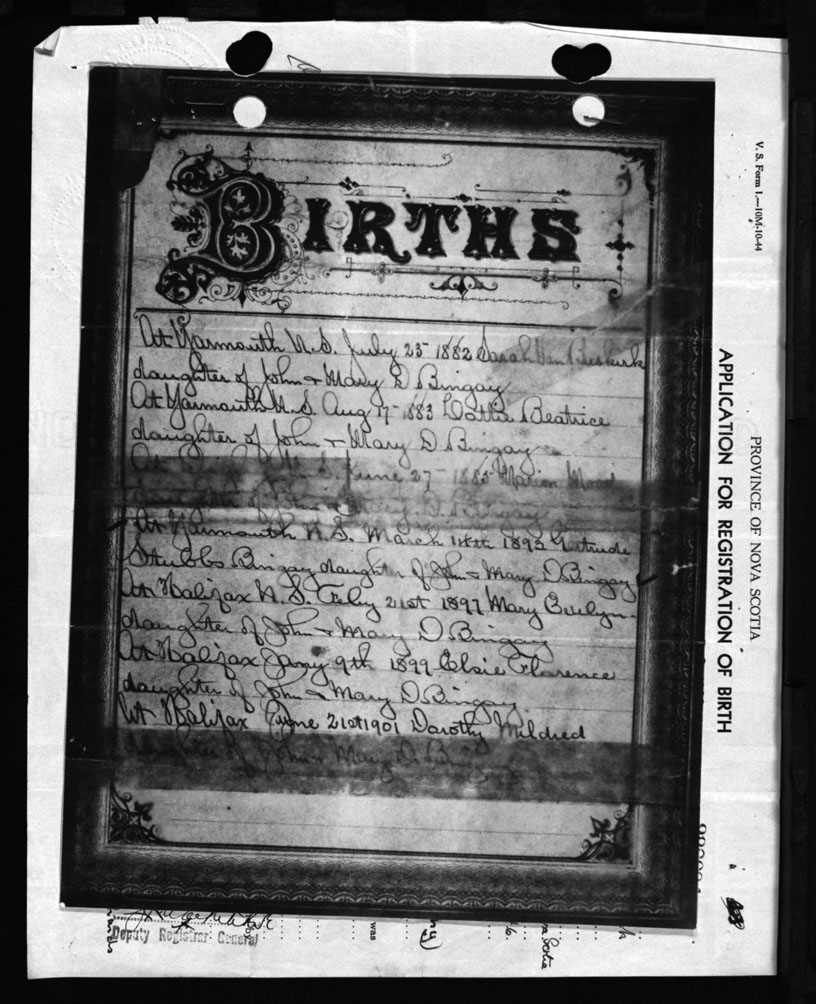 BIRTHS
At Yarmouth N.S. July 25 1882 Sarah Van Buskirk
daughter of John & Mary D Bingay
At Yarmouth N.S. Aug 17 1883 Hattie Beatrice
daughter of John & Mary D Bingay
At N.S. June 27 1885 Marion
daughter of John & Mary D. Bingay
At Yarmouth N.S. March 14th 1893 Gertrude
Stubbs Bingay daughter of John & Mary D Bingay
At Halifax N.S. Feby 21st 1897 Mary Evelyn
daughter of John & Mary D Bingay
At Halifax Jany 9th 1899 Elsie Florence
daughter of John & Mary D. Bingay
At Halifax June 21st 1901 Dorothy Mildred
daughter of John & Mary D. B
V. S. Form 1.—10M-10-44
PROVINCE OF NOVA SCOTIA
APPLICATION FOR REGISTRATION OF BIRTH
Deputy Registrar General
was
Scotia